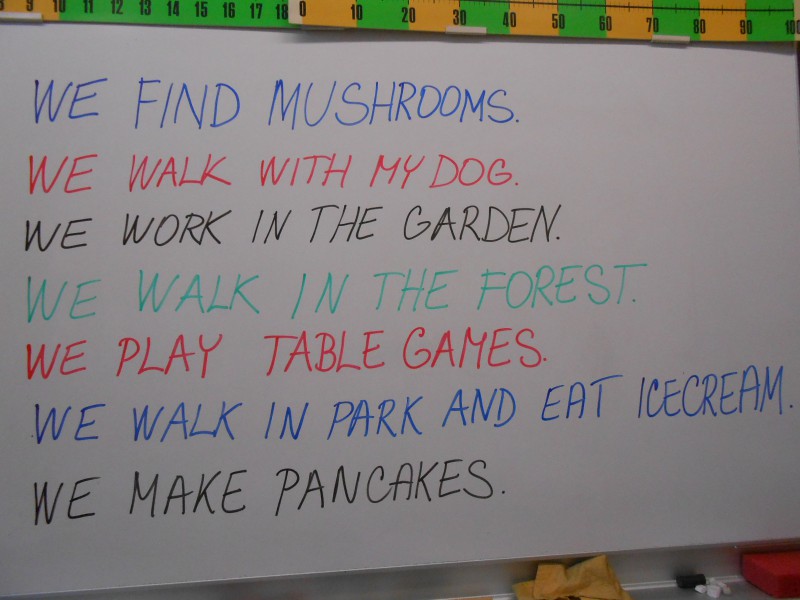 8 9 10 11 12 13 14 15 16 17 18 0 10 20 30 40 50 60 70 80 90 100
WE FIND MUSHROOMS.
WE WALK WITH MY DOG.
WE WORK IN THE GARDEN.
WE WALK IN THE FOREST.
WE PLAY TABLE GAMES.
WE WALK IN PARK AND EAT ICECREAM.
WE MAKE PANCAKES.